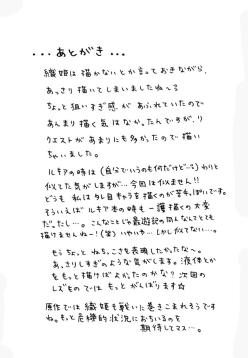 ...あとがき...
織姫は描かないとか言っておきながら、
あっさり描いてしまいましたね〜る
ちょっと狙いすぎ感があふれていたので
あんまり描く気はなかったんですが、リ
クエストがあまりにも多かったので描い
ちゃいました。
ルキアの時は(自分でいうのも何だけど…)わりと
似てた気がしますが…今回は似ません!!
どうも私はタレ目キャラを描くのが苦手っぽいです。
そういえばルキア本の時も一護描くの大変
だったし…。こんなことじゃ最遊記の同人なんてとても
描けませんねー!(笑)いやいや…しかし似てない…。
もうちょっとねちっこさを表現したかったな〜。
あっさりしすぎのような気がします。液体とか
をもっと描けばよかったのかな?次回の
レズものでは、もっとがんばります☆
原作では織姫も戦いに巻きこまれそうです
ね。もっと危機的状況におちいるのを
期待してマス…。